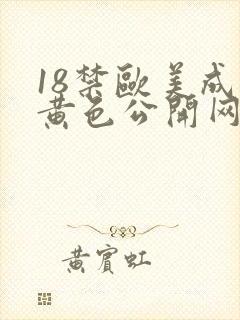 18禁歐美成
黄色公開网
黄賓虹